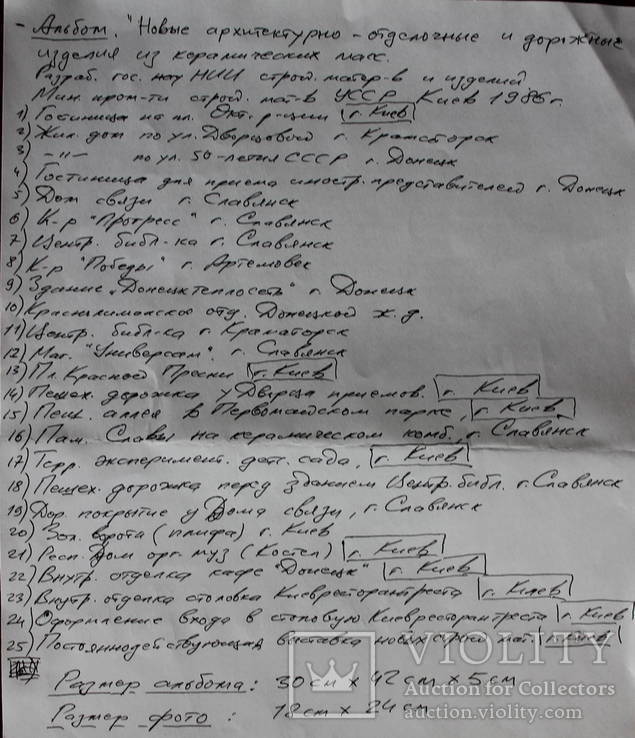 - Альбом. "Новые архитектурно-отделочные и дорожные
изделия из керамических масс.
Разраб. гос. НИИ строй. матер-в и изделий
Мин. пром-ти строй. мат-в УССР Киев 1986 г.
1) Гостиница на пл. Окт. р-ции г. Киев
2) Жил. дом по ул. Дворцовой г. Краматорск
3) -"- по ул. 50-летия СССР г. Донецк
4) Гостиница для приема иностр. представителей г. Донецк
5) Дом связи г. Славянск
6) К-р "Прогресс" г. Славянск
7) Центр. библ-ка г. Славянск
8) К-р "Победы" г. Артемовск
9) Здание "Донецктеплосеть" г. Донецк
10) Краснолиманское отд. Донецкой ж.д.
11) Центр. библ-ка г. Краматорск
12) Маг. "Универсам". г. Славянск
13) Пл. Красной Пресни г. Киев
14) Пешех. дорожка у Дворца приемов. г. Киев
15) Пеш. аллея в Первомайском парке, г. Киев
16) Пам. Славы на керамическом комб., г. Славянск
17) Терр. эксперимент. дет. сада, г. Киев
18) Пешех. дорожка перед зданием Центр. библ. г. Славянск
19) Дор. покрытие у Дома связи, г. Славянск
20) Зол. ворота (плита) г. Киев
21) Респ. Дом орг. муз (Костел) г. Киев
22) Внутр. отделка кафе "Донецк" г. Киев
23) Внутр. отделка столовка Киевресторантреста г. Киев
24) Оформление входа в столовую Киевресторантреста г. Киев
25) Постояннодействующая выставка новых строй. мат. г. Киев
Размер альбома: 30 см х 42 см х 5 см
Размер фото : 18 см х 24 см
VIOLITY
Auction for Collectors
auction.violity.com